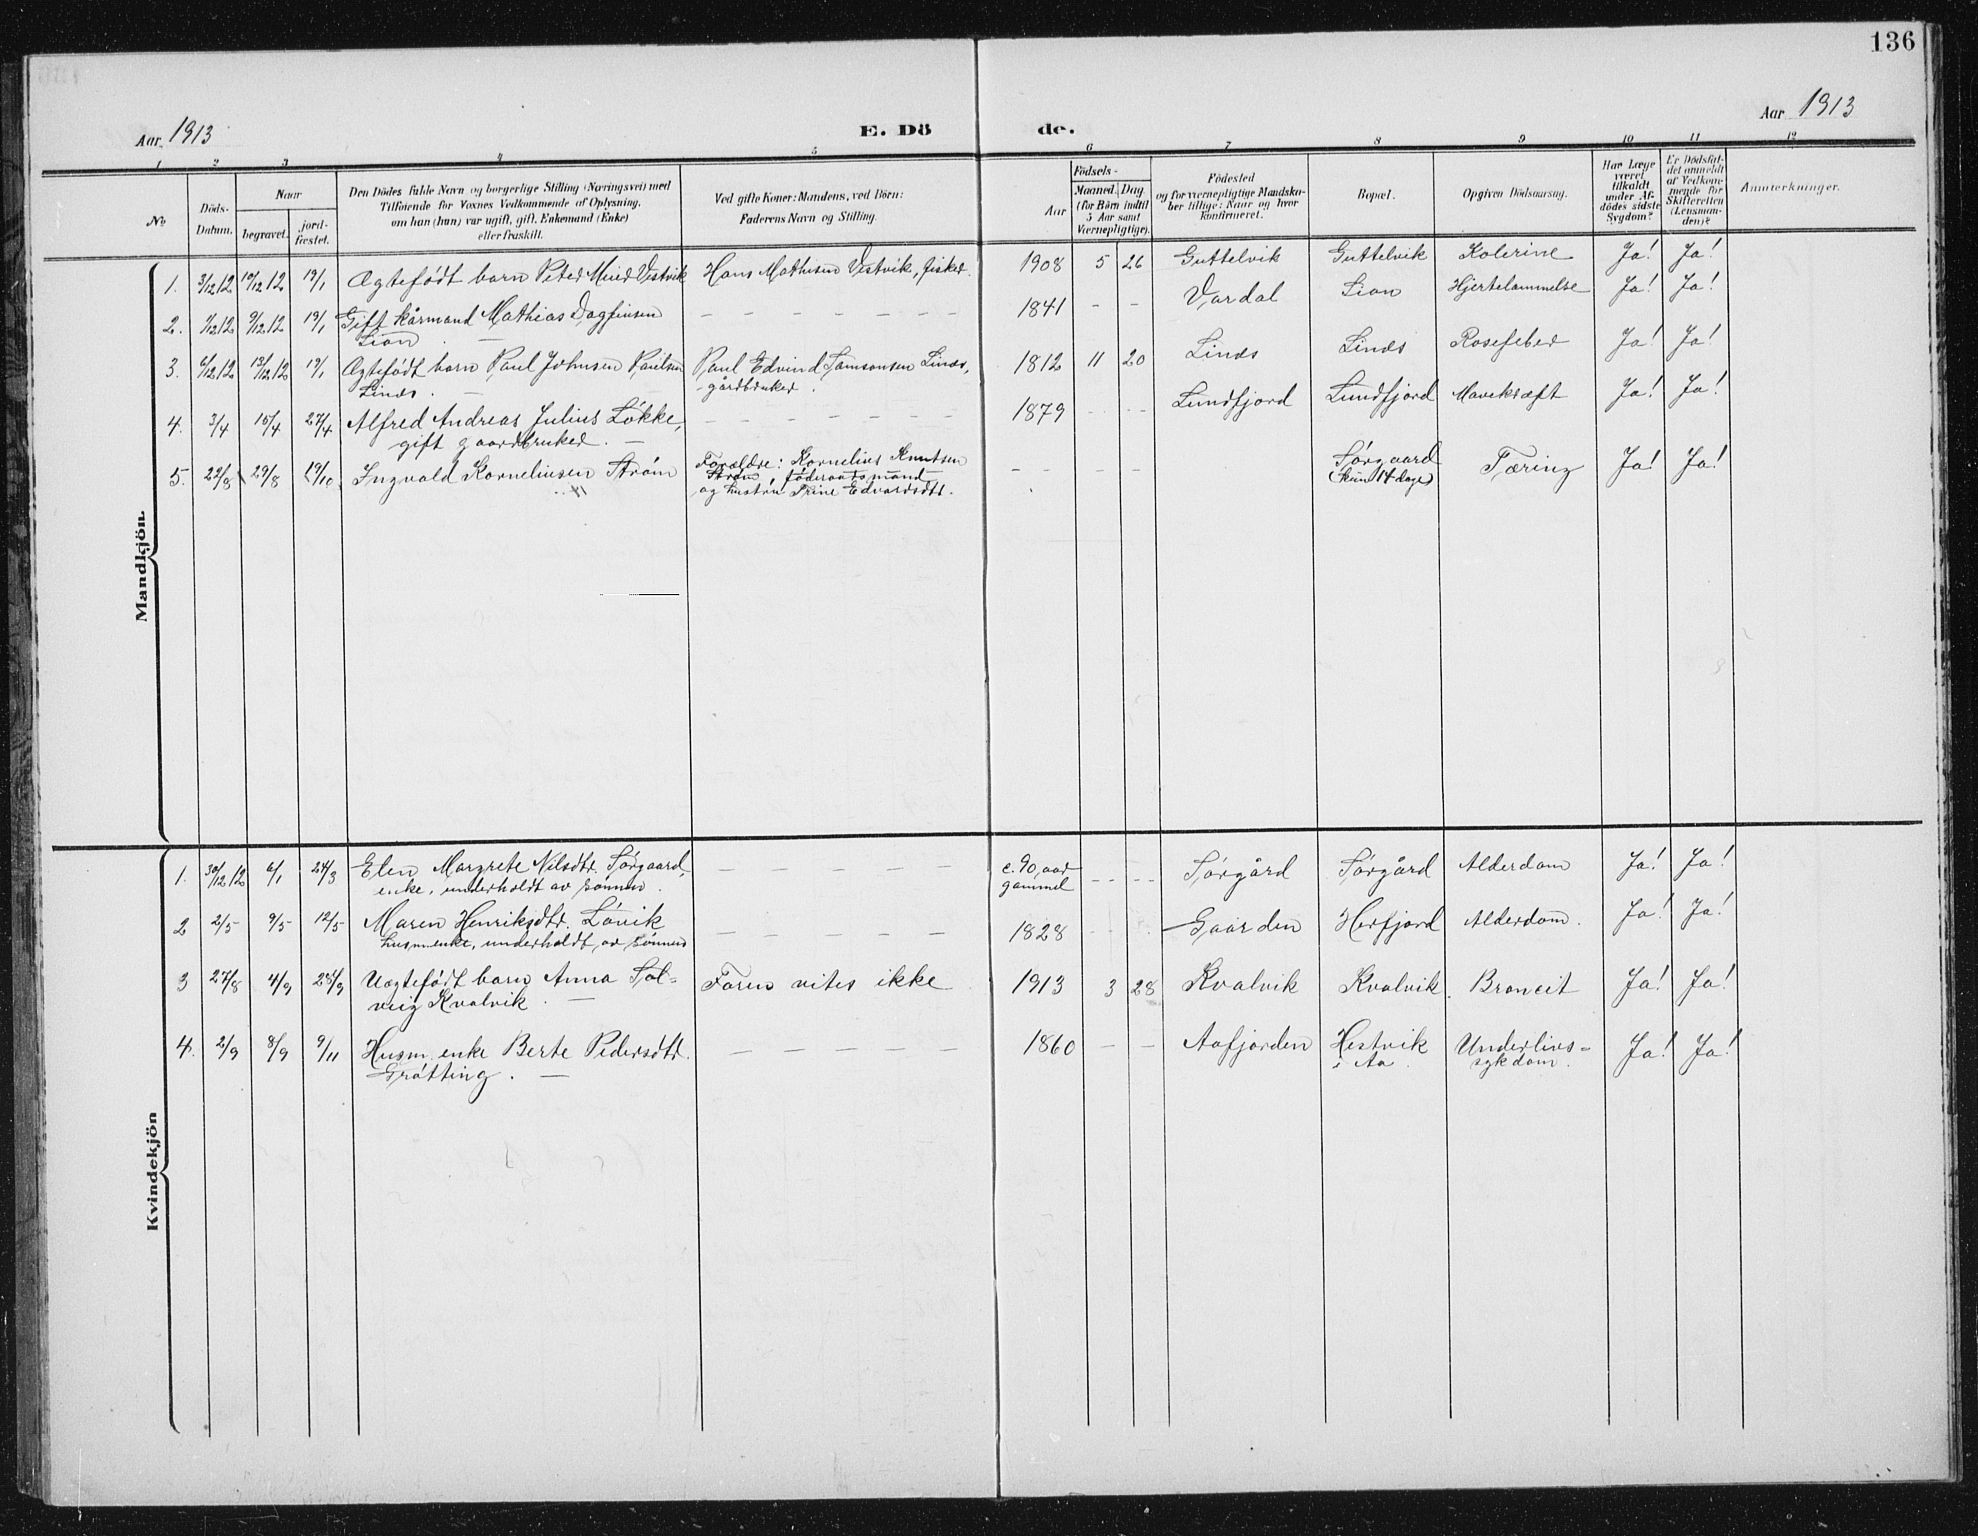 136
Aar 1913
E. Dö de.
Aar 1913
1 2 3 4 5 6 7 8 9 10 11 12
No
Döds-
Datum.
Naar
begravet.
jord-
fæstet.
Den Dödes fulde Navn og borgerlige Stilling (Næringsvei) med
Tilföiende for Voxnes Vedkommende af Oplysning,
om han (hun) var ugift, gift, Enkemand (Enke)
eller fraskilt.
Ved gifte Koner: Mandens, ved Börn:
Faderens Navn og Stilling.
Födsels-
Aar
Maaned. Dag.
(for Börn indtil
5 Aar samt
Værnepligtige).
Födested
og for værnepligtige Mandska-
ber tillige: Naar og hvor
konfirmeret.
Bopæl.
Opgiven Dödsaarsag.
Har Læge
været
tilkaldt
under Af-
dödes sidste
Sygdom?
Er Dödsfal-
det anmeldt
af Vedkom-
mende for
Skifteretten
(Lensman-
den)?
Anmærkninger.
Mandkjön.
1. 3/12 12 10/12 12 19/1 Ægtefødt barn Peter Vestvik Hans Mathisen Vestvik, fisker. 1908 5 26 Guttelvik Guttelvik Kolerine Ja! Ja!
2. 1/12 12 9/12 12 19/1 Gift kårmand Mathias Dagfinsen — — — — — — 1841 — — Vardal Lien Hjertelammelse Ja! Ja!
Lien. —
3. 6/12 12 13/12 12 19/1 Ægtefødt barn Paul Johnsen Paulsen Paul Edvind Samsonsen Linds, 1812 11 20 Linds Linds Rosefeber Ja! Ja!
Linds. — gårdbruker.
4. 3/4 15/4 27/4 Alfred Andreas Julius Løkke, — — — — — — 1879 - - Lundfjord Lundfjord Mavekræft Ja! Ja!
gift gaardbruker. —
5. 22/8 29/8 19/10 Ingvald Korneliusen Strøm Forældre: Kornelius Knutsen - - - - Sørgaard Tæring Ja! Ja!
Strøm, føderaadsmand (kun 14 dage)
og hustru Trine Edvardsdtr.
Kvindekjön
1. 30/12 12 6/1 24/3 Elen Margrete Nilsdtr. Sørgaard, — — — — — c. 90 aar - - - - Sørgård Sørgård Alderdom Ja! Ja!
enke, underholdt av sønnen. gammel
2 2/5 9/5 12/5 Maren Henriksdtr. Løvik — — — — — 1828 - - - Gaarden Herfjord Alderdom. Ja! Ja!
husm.enke, underholdt av sønnen
3 27/8 4/9 28/9 Uægtefødt barn Anna Sol- Faren vites ikke 1913 3 28 Kvalvik Kvalvik. Broncit Ja! Ja!
veig Kvalvik. —
4. 2/9 8/9 9/11 Husm. enke Berte Pedersdtr. — — — — — 1860 — — Aafjorden Hestvik Underlivs- Ja! Ja!
Grøtting. — i Aa. sykdom.